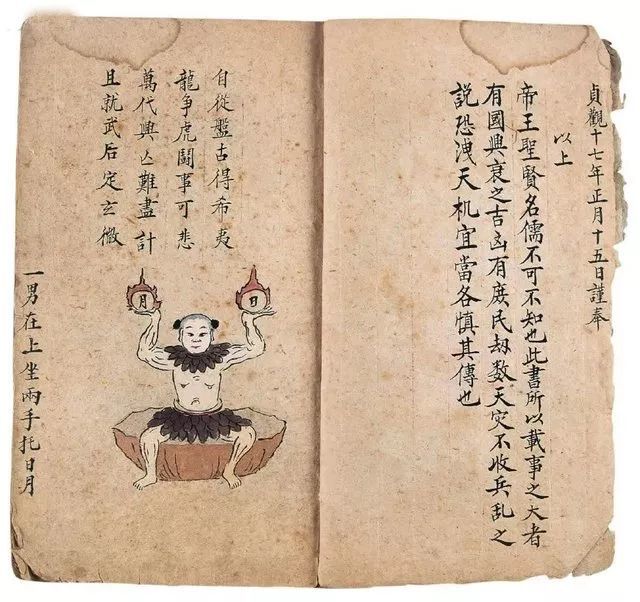 貞觀十七年正月十五日謹奉
以上
帝王聖賢名儒不可不知也此書所以載事之大者
有國興衰之吉凶有庶民劫数天灾不收兵乱之
説恐洩天机宜當各慎其傳也
自從盤古得希夷
龍争虎鬪事可悲
萬代興亡難盡計
且就武后定玄微
月
日
一男在上坐兩手托日月